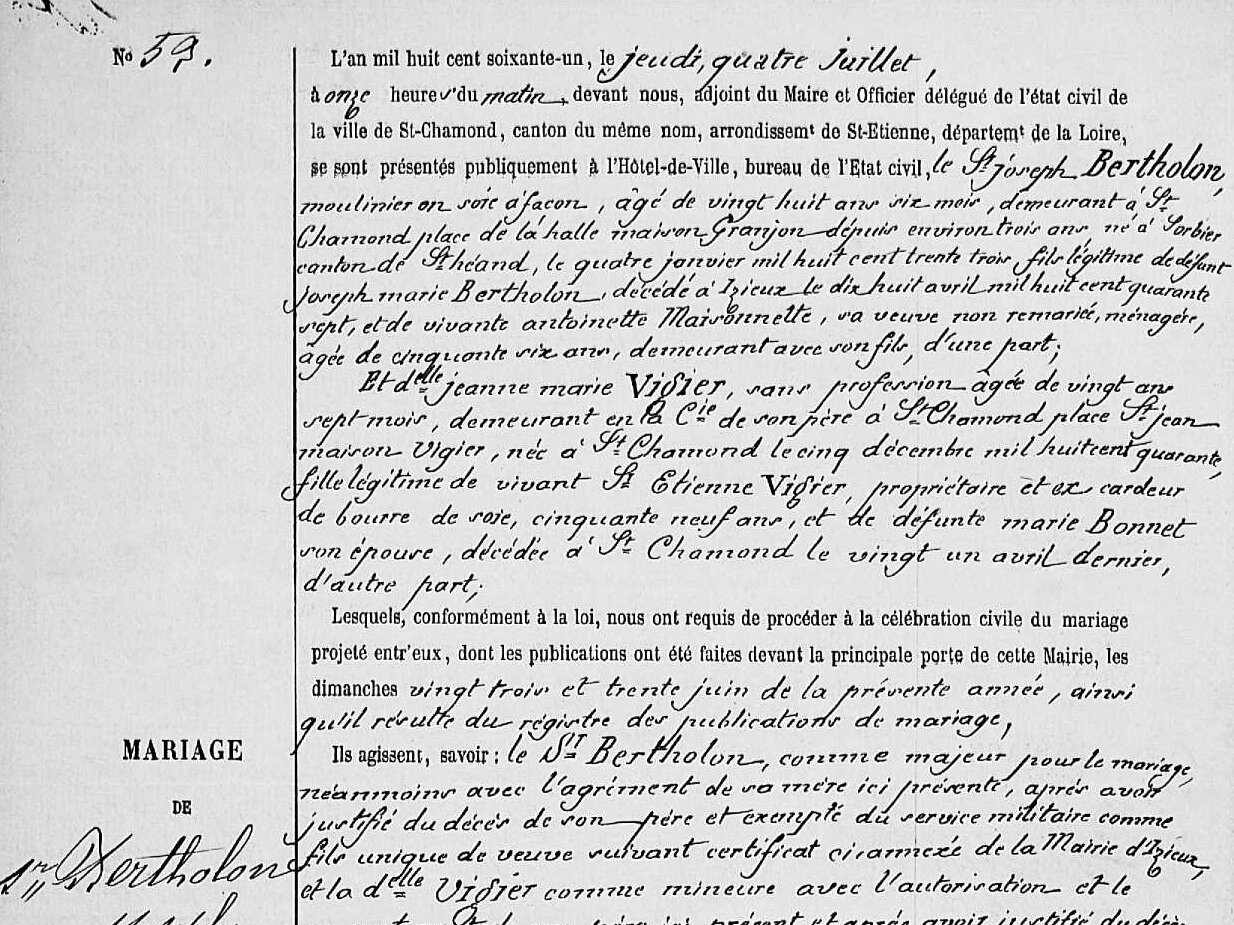 No 59.
L'an mil huit cent soixante-un, le jeudi, quatre Juillet,
à onze heures du matin, devant nous, adjoint du Maire et Officier délégué de l'état civil de
la ville de St-Chamond, canton du même nom, arrondissemt de St-Etienne, départemt de la Loire,
se sont présentés publiquement à l'Hôtel-de-Ville, bureau de l'Etat civil, le Sr joseph Bertholon,
moulinier en soie à façon, âgé de vingt huit ans six mois, demeurant à St
Chamond place de la halle maison Granjon depuis environ trois ans né à Sorbier
canton de St héand, le quatre janvier mil huit cent trente trois, fils légitime de défunt
joseph marie Bertholon, décédé à Izieux le dix huit avril mil huit cent quarante
sept, et de vivante antoinette Maisonnette, sa veuve non remariée, ménagère,
âgée de cinquante six ans, demeurant avec son fils, d'une part;
Et delle jeanne marie Vigier, sans profession âgée de vingt ans
sept mois, demeurant en la Cie de son père à St Chamond place St jean
maison Vigier, née à St Chamond le cinq décembre mil huit cent quarante,
fille légitime de vivant Sr Etienne Vigier, propriétaire et ex cardeur
de bourre de soie, cinquante neuf ans, et de défunte marie Bonnet
son épouse, décédée à St Chamond le vingt un avril dernier,
d'autre part;
Lesquels, conformément à la loi, nous ont requis de procéder à la célébration civile du mariage
projeté entr'eux, dont les publications ont été faites devant la principale porte de cette Mairie, les
dimanches vingt trois et trente juin de la présente année, ainsi
qu'il résulte du régistre des publications de mariage,
MARIAGE
DE
Sr Bertholon
Ils agissent, savoir: le Sr Bertholon, comme majeur pour le mariage,
néanmoins avec l'agrément de sa mère ici présente, après avoir
justifié du décès de son père et exempté du service militaire comme
fils unique de veuve suivant certificat ci annexé de la Mairie d'Izieux,
et la delle Vigier comme mineure avec l'autorisation et le
présent et après avoir justifié du décès